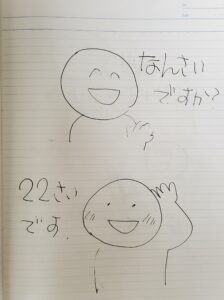 なんさい
ですか?
22さい
です.